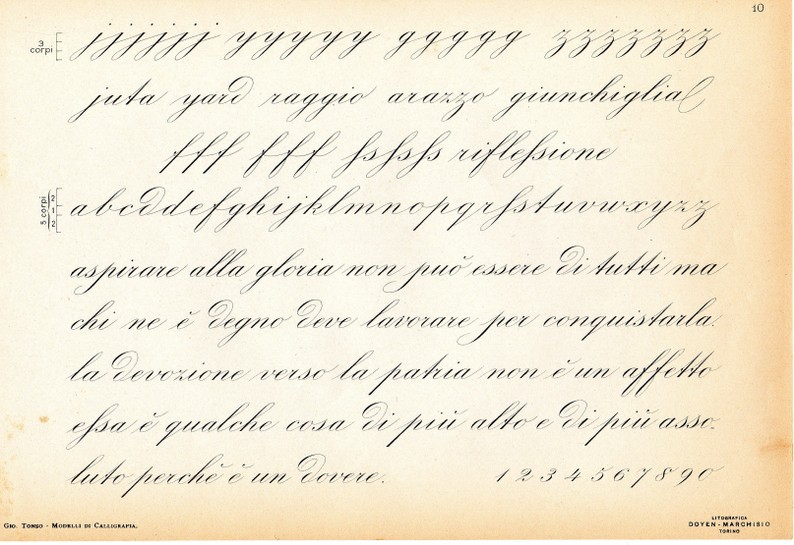 10
3 corpi
jjjjjj yyyyy ggggg zzzzzzz
juta yard raggio arazzo giunchiglia
fff fff ſsſsſs rifleſsione
5 corpi 2 1 2
abcddefghijklmnopqrſstuvwxyzz
aspirare alla gloria non può essere di tutti ma
chi ne è degno deve lavorare per conquistarla.
la devozione verso la patria non è un affetto
eſsa è qualche cosa di più alto e di più asso-
luto perchè è un dovere. 1 2 3 4 5 6 7 8 9 0
Gio. Tonso - Modelli di Calligrafia.
LITOGRAFICA
DOYEN-MARCHISIO
TORINO